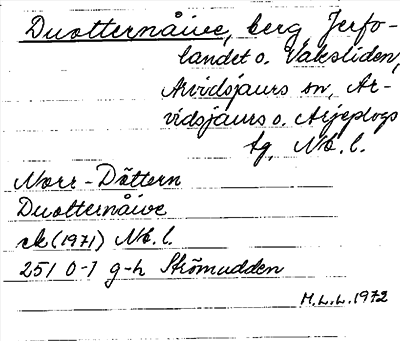 Duotternåive, berg, Jerfo-
landet o. Vaksliden,
Arvidsjaurs sn, Ar-
vidsjaurs o. Arjeplogs
tg, Nb. l.
Norr-Döttern
Duotternåive
ek (1971) Nb. l.
251 0-1 g-h Strömudden
M.L.L. 1972